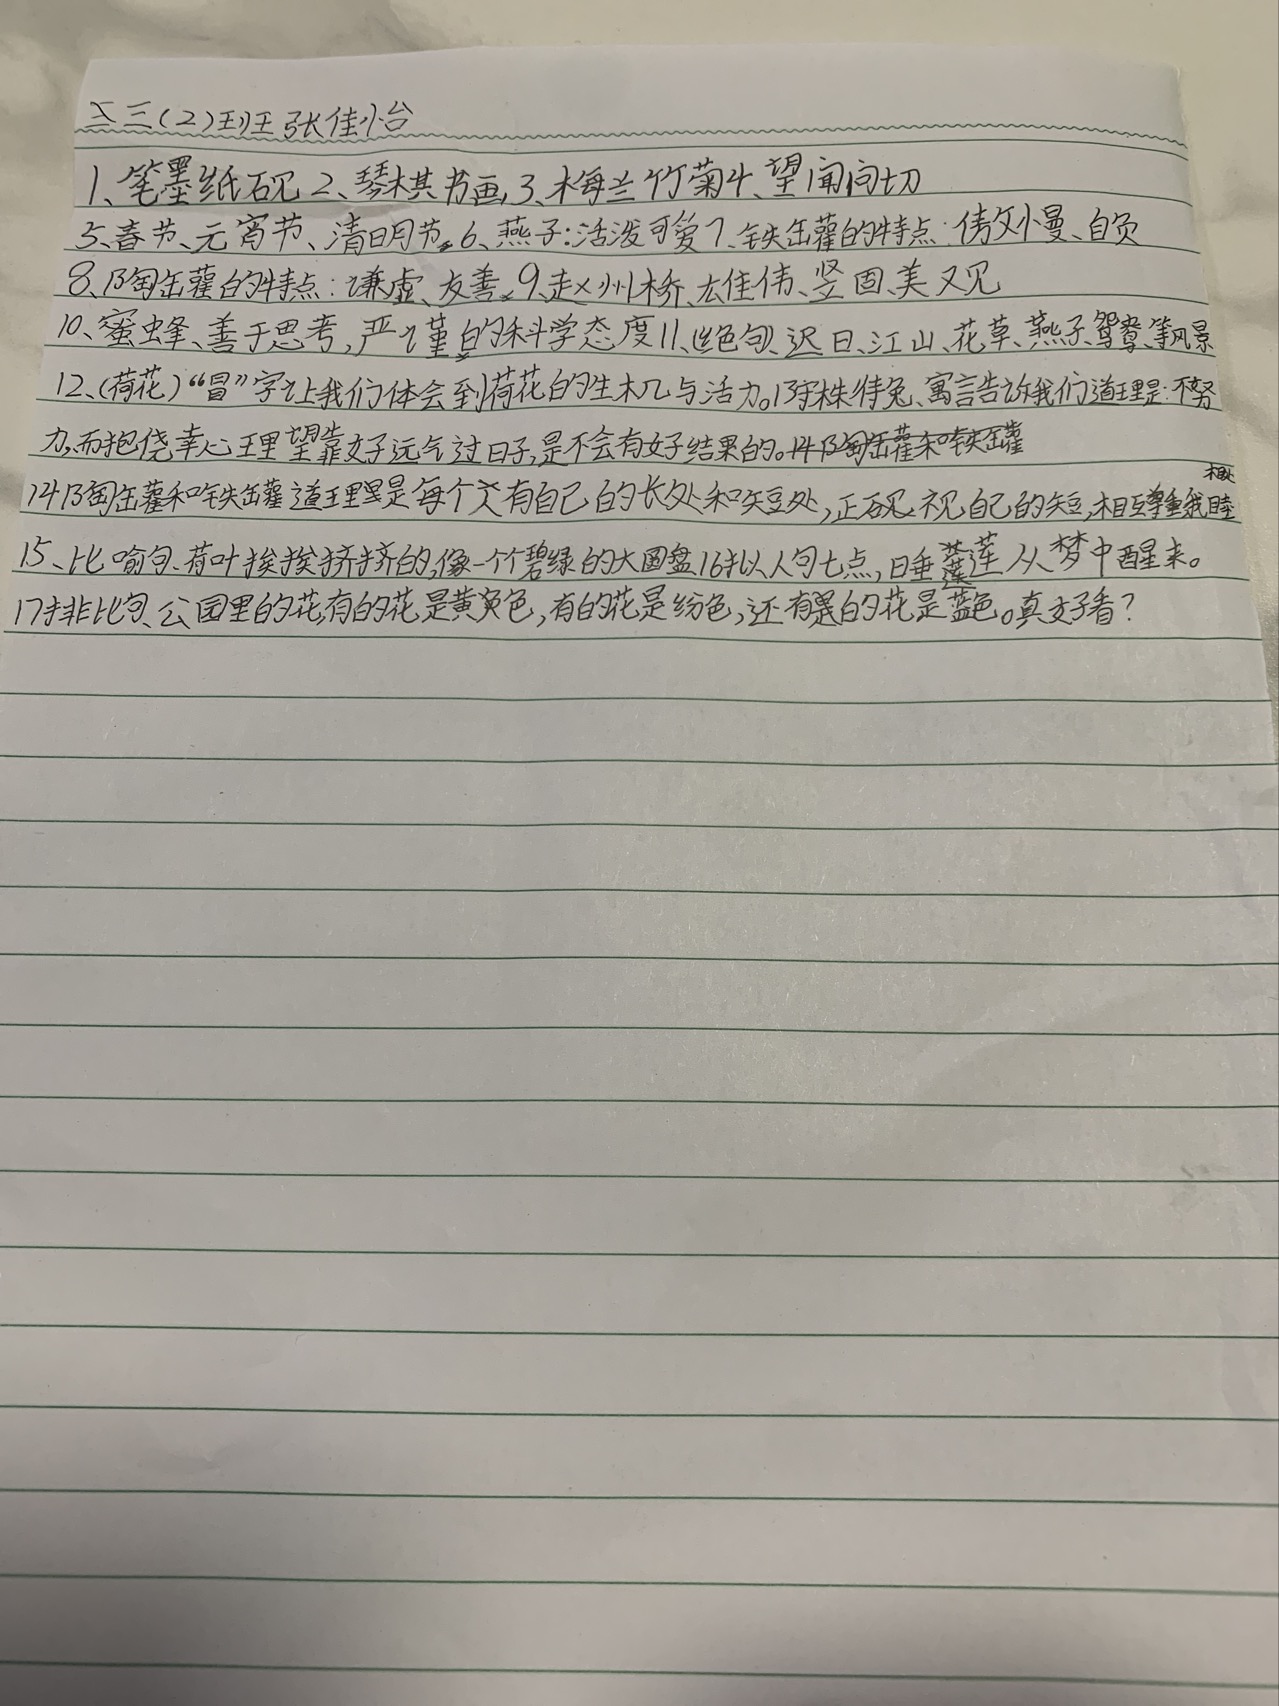 三(2)班 张佳怡
1、笔墨纸砚 2、琴棋书画 3、梅兰竹菊 4、望闻问切
5、春节、元宵节、清明节。6、燕子:活泼可爱 7、铁缶灌的特点:傲慢、自负
8、陶缶灌的特点:谦虚、友善。9、赵州桥、雄伟、坚固、美观
10、蜜蜂、善于思考,严谨的科学态度 11、《绝句》、迟日、江山、花草、燕子、鸳鸯、等风景
12、(荷花)“冒”字让我们体会到荷花的生机与活力。13守株待兔、寓言告诉我们道理是:不努
力,而抱侥幸心理望靠好运气过日子,是不会有好结果的。14陶缶灌和铁缶灌
14陶缶灌和铁缶灌道理是每个人有自己的长处和短处,正视自己的短,相互尊重和睦
相处
15、比喻句、荷叶挨挨挤挤的,像一个个碧绿的大圆盘 16拟人句七点,睡莲从梦中醒来。
17排比句、公园里的花,有的花是黄色,有的花是纷色,还有的花是蓝色。真好看?